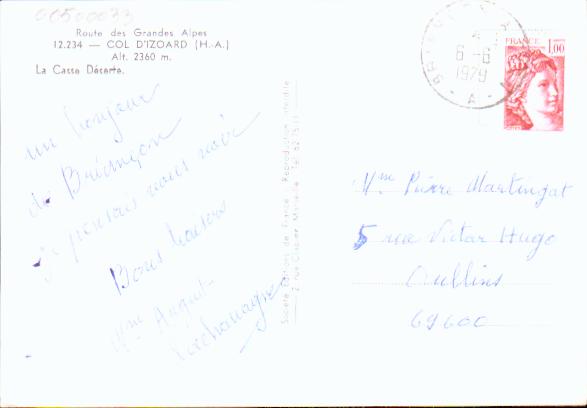 00500033
Route des Grandes Alpes
12.234 — COL D'IZOARD (H.-A.)
Alt. 2360 m.
La Casse Déserte.
un bonjour
de Briançon
je pensais vous voir
Bons baisers
Mme August
Société Editions de France : Reproduction interdite
2, rue Marseille - Tél.
A
6 -6
1979
- A -
FRANCE
1,00
Mme Pierre Martingat
5 rue Victor Hugo
Oullins
69600